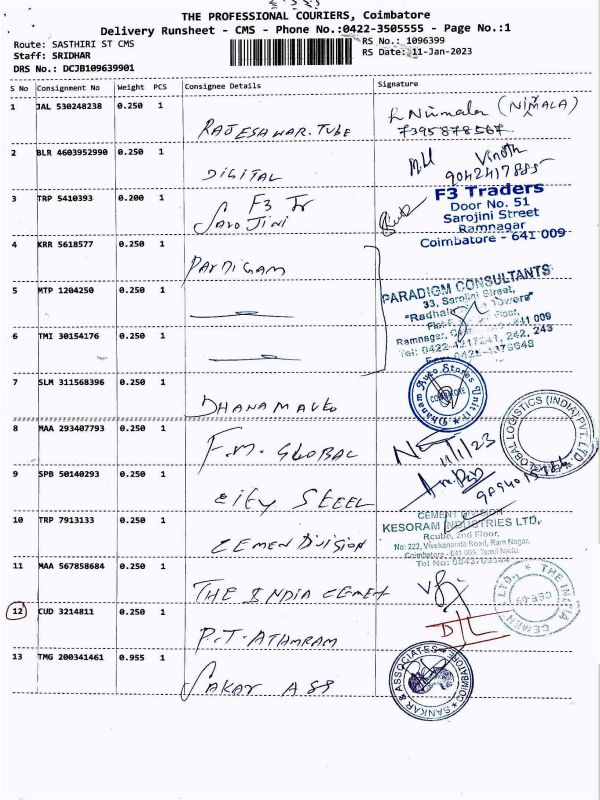 THE PROFESSIONAL COURIERS, Coimbatore
Delivery Runsheet - CMS - Phone No.:0422-3505555 - Page No.:1
Route: SASTHIRI ST CMS
RS No.: 1096399
Staff: SRIDHAR
RS Date: 11-Jan-2023
DRS No.: DCJB109639901
S No Consignment No Weight PCS Consignee Details Signature
1 JAL 530248238 0.250 1 RAJESHWAR. TUBE
Nirmala (NIRMALA)
7395878567
2 BLR 4603952990 0.250 1 DIGITAL
Vinoth
9042417885
3 TRP 5410393 0.200 1 F3 Tr
SAROJINI
F3 Traders
Door No. 51
Sarojini Street
Ramnagar
Coimbatore - 641 009
4 KRR 5618577 0.250 1 PARDIGAM
5 MTP 1204250 0.250 1
PARADIGM CONSULTANTS
33, Sarojini Street,
"Radhala Towers"
Floor,
Ramnagar, 641 009
Tel: 0422-4217241, 242, 243
6 TMI 30154176 0.250 1
7 SLM 311568396 0.250 1 DHANAM AUTO
Dhanam Auto Stores Unit
COIMBATORE
8 MAA 293407793 0.250 1 F.M. GLOBAL
11/1/23
GLOBAL LOGISTICS (INDIA) PVT. LTD.
9 SPB 50140293 0.250 1 city STEEL
10 TRP 7913133 0.250 1 CEMEN DIVISION
CEMENT DIVISION
KESORAM INDUSTRIES LTD.
Rcube, 2nd Floor,
No: 222, Vivekananda Road, Ram Nagar,
Coimbatore - 641 009, Tamil Nadu.
11 MAA 567858684 0.250 1 THE INDIA CEMENT
THE INDIA CEMENT LTD.,
12 CUD 3214811 0.250 1 P.T. ATHMRAM
DTL
13 TMG 200341461 0.955 1 SAKAR ASS
SANKAR & ASSOCIATES
COIMBATORE